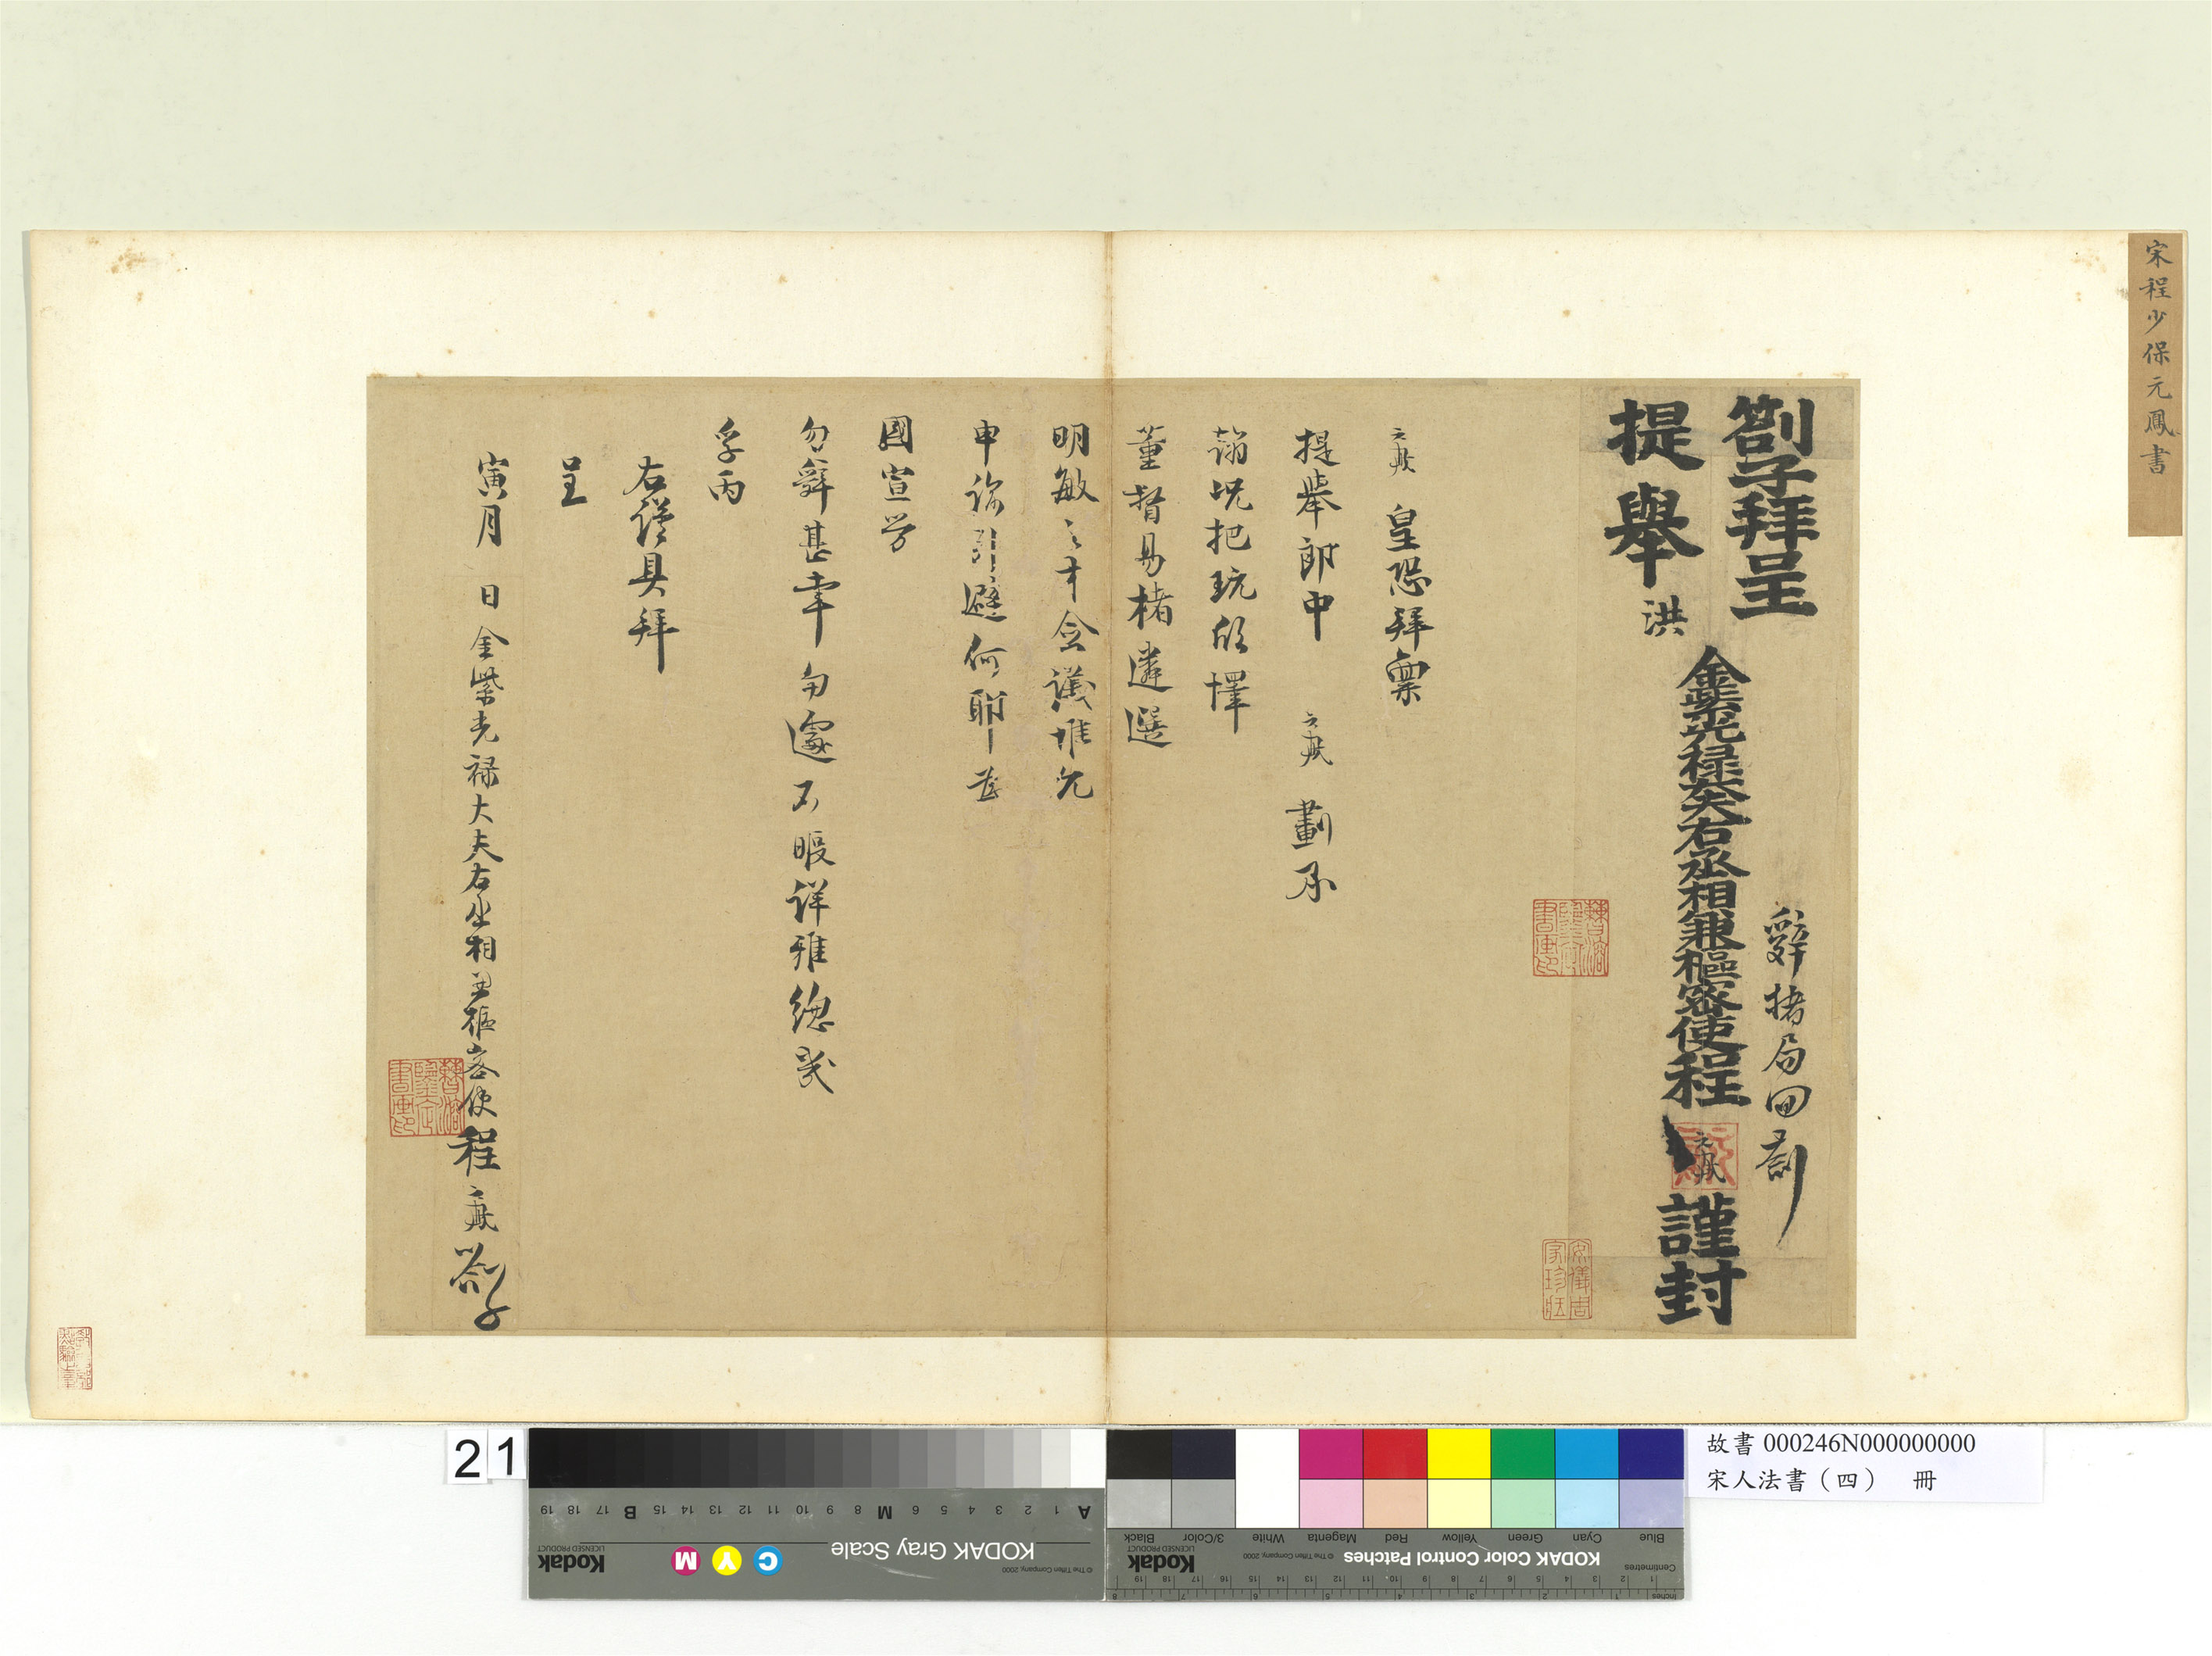 宋程少保元鳳書
劄子拜呈
辭楮局回劄
提舉 洪
金紫光祿大夫右丞相兼樞密使程 元鳳 謹封
元鳳 皇恐拜稟
提舉郎中 元鳳 劃承
翰貺把玩欣懌
董督易楮遴選
明敏之才僉議惟允
申詠引避何耶 茲
國宣勞
勿辭甚幸 匆遽不暇詳 雅 總幾
孚丙
右謹具拜
呈
寅月 日 金紫光祿大夫右丞相兼樞密使程 元鳳 劄子
安儀周家珍藏
21
KODAK Gray Scale
Kodak
LICENSED PRODUCT
© The Tiffen Company, 2000
C Y M
A 1 2 3 4 5 6 M 8 9 10 11 12 13 14 15 B 17 18 19
KODAK Color Control Patches
Kodak
LICENSED PRODUCT
© The Tiffen Company, 2000
Blue Cyan Green Yellow Red Magenta White 3/Color Black
Centimetres
Inches
故書 000246N000000000
宋人法書（四） 冊